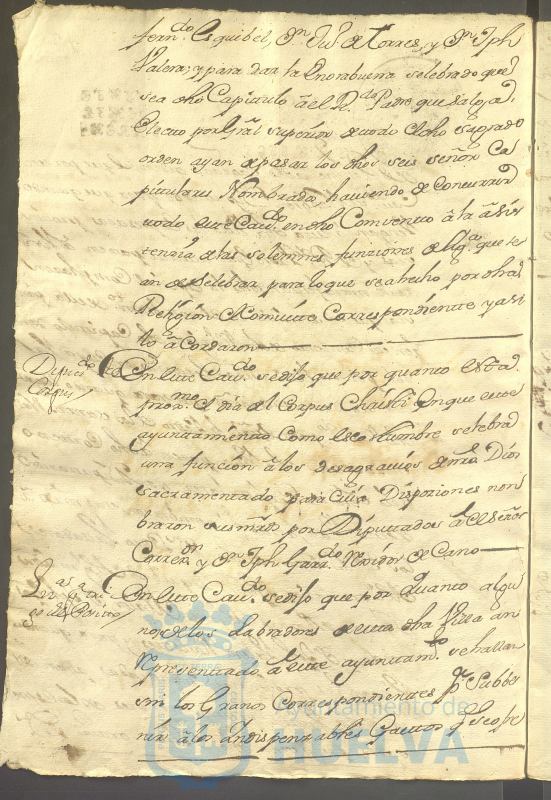 fern.do Esquibel, Dn. Ju.o de Torres, y Dn. Jph
Valera; y para dar la enorabuena selebrado que
sea dho Capitulo a el R.do Padre que salga
Electo por Gral superior de todo el dho sagrado
orden ayan de pasar los dhos seis señor Ca
pitulares Nombrados, haviendo de concurrir
todo este Cav.do en dho Convento a la asis
tenzia de las solemnes funziones de Yg.a que se
an de selebrar para lo que se a hecho por dha
Religion Combite Correspondiente y asi
lo acordaron
Diput.do
Corpus
En este Cav.do se dijo que por quanto esta
prox.mo el dia del Corpus Christi en que este
ayuntamiento como es costumbre selebra
una funcion a los desagravios de nro Dios
sacramentado para cuia Dispoziones non
braron sus mds por Diputados a el señor
Correx.or y Dn. Jph Garr.do Rexidor de Cano
En este Cav.do se dijo que por quanto algu
nos de los Labradores de esta dha Villa an
representado a este ayuntam.to se hallan
sin los Granos Correspondientes p.a Subbe
nir a los yndispenzables Gastos q.e se ofre
Ayuntamiento de
HUELVA